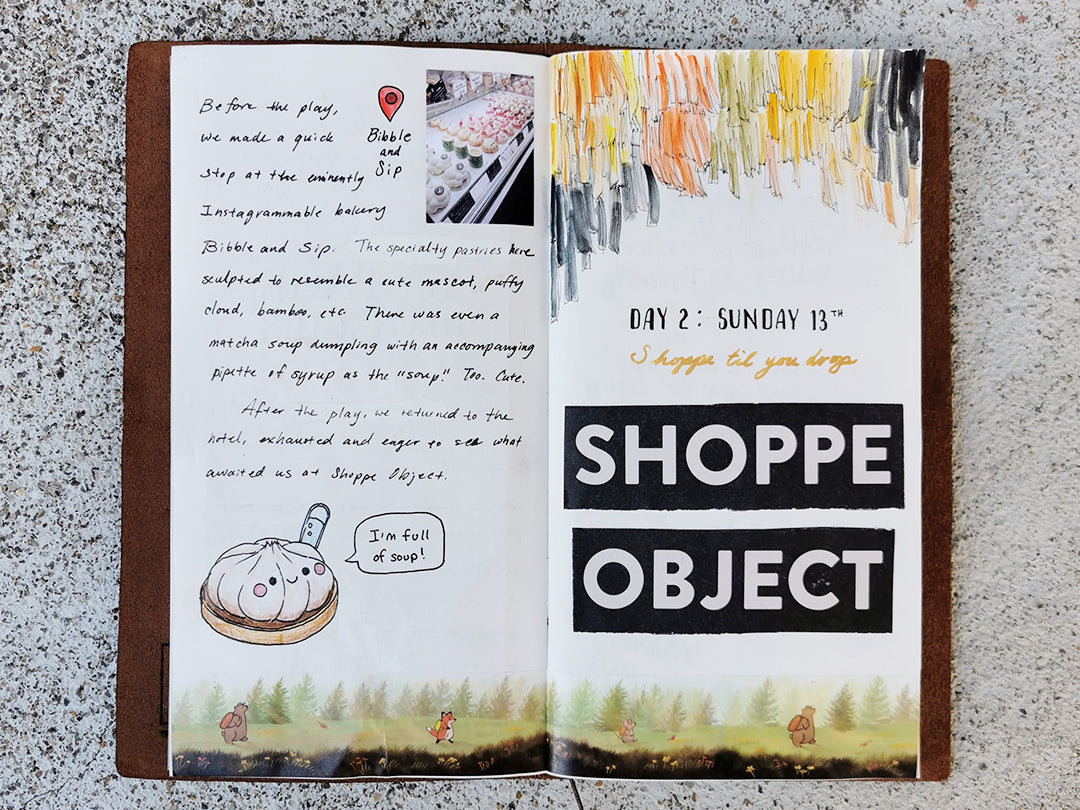 Before the play,
we made a quick
stop at the eminently
Instagrammable bakery
Bibble and Sip. The specialty pastries here
sculpted to resemble a cute mascot, puffy
cloud, bamboo, etc. There was even a
matcha soup dumpling with an accompanying
pipette of syrup as the "soup!" Too. Cute.
After the play, we returned to the
hotel, exhausted and eager to see what
awaited us at Shoppe Object.
Bibble
and
Sip
I'm full
of soup!
DAY 2: SUNDAY 13TH
Shoppe til you drop
SHOPPE
OBJECT